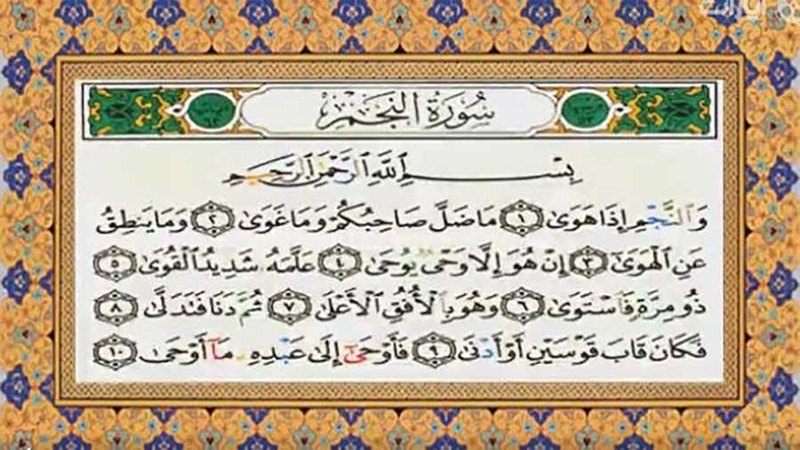 سُورَةُ النَّجْمِ
بِسْمِ اللَّهِ الرَّحْمَٰنِ الرَّحِيمِ
وَالنَّجْمِ إِذَا هَوَىٰ ١ مَا ضَلَّ صَاحِبُكُمْ وَمَا غَوَىٰ ٢ وَمَا يَنطِقُ
عَنِ الْهَوَىٰ ٣ إِنْ هُوَ إِلَّا وَحْيٌ يُوحَىٰ ٤ عَلَّمَهُ شَدِيدُ الْقُوَىٰ ٥
ذُو مِرَّةٍ فَاسْتَوَىٰ ٦ وَهُوَ بِالْأُفُقِ الْأَعْلَىٰ ٧ ثُمَّ دَنَا فَتَدَلَّىٰ ٨
فَكَانَ قَابَ قَوْسَيْنِ أَوْ أَدْنَىٰ ٩ فَأَوْحَىٰ إِلَىٰ عَبْدِهِ مَا أَوْحَىٰ ١٠